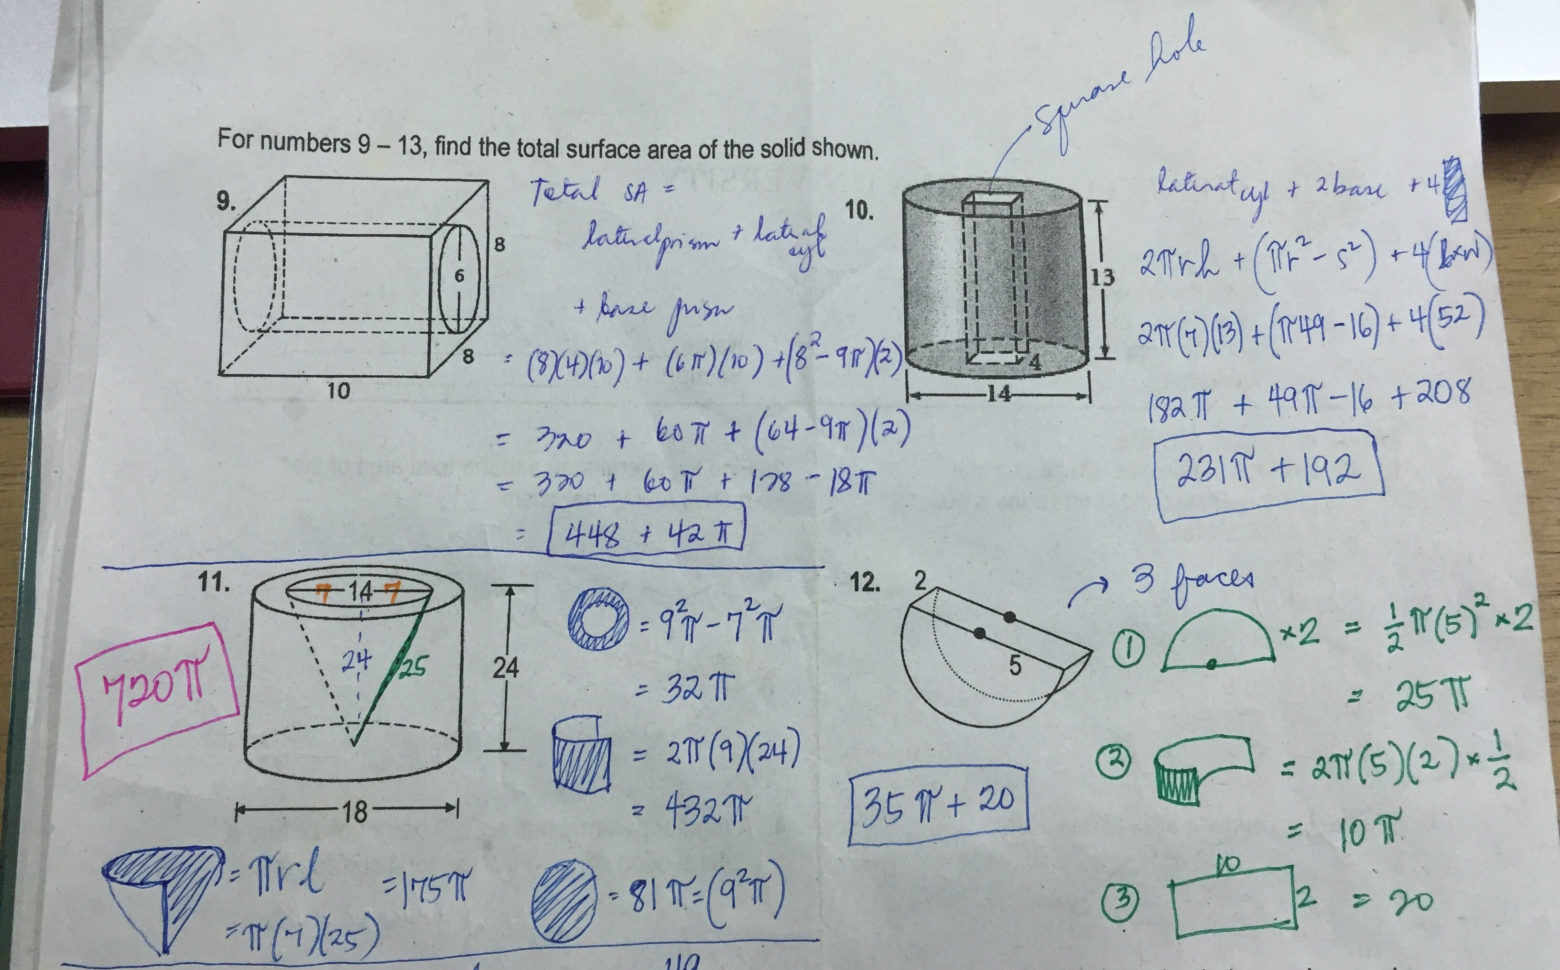 square hole
For numbers 9 – 13, find the total surface area of the solid shown.
9.
8
6
8
10
Total SA =
lateral prism + lateral cyl
+ base prism
= (8)(4)(10) + (6π)(10) + (8² - 9π)(2)
= 320 + 60π + (64 - 9π)(2)
= 320 + 60π + 128 - 18π
= 448 + 42π
10.
13
4
14
lateral cyl + 2base + 4
2πrh + (πr² - s²) + 4(l×w)
2π(7)(13) + (π49 - 16) + 4(52)
182π + 49π - 16 + 208
231π + 192
11.
7 14 7
24
25
24
18
720π
= 9²π - 7²π
= 32π
= 2π(9)(24)
= 432π
= πrl
= π(7)(25)
= 175π
= 81π = (9²π)
12.
2
5
→ 3 faces
① ×2 = ½π(5)² × 2
= 25π
② = 2π(5)(2) × ½
= 10π
③ 10 2 = 20
35π + 20